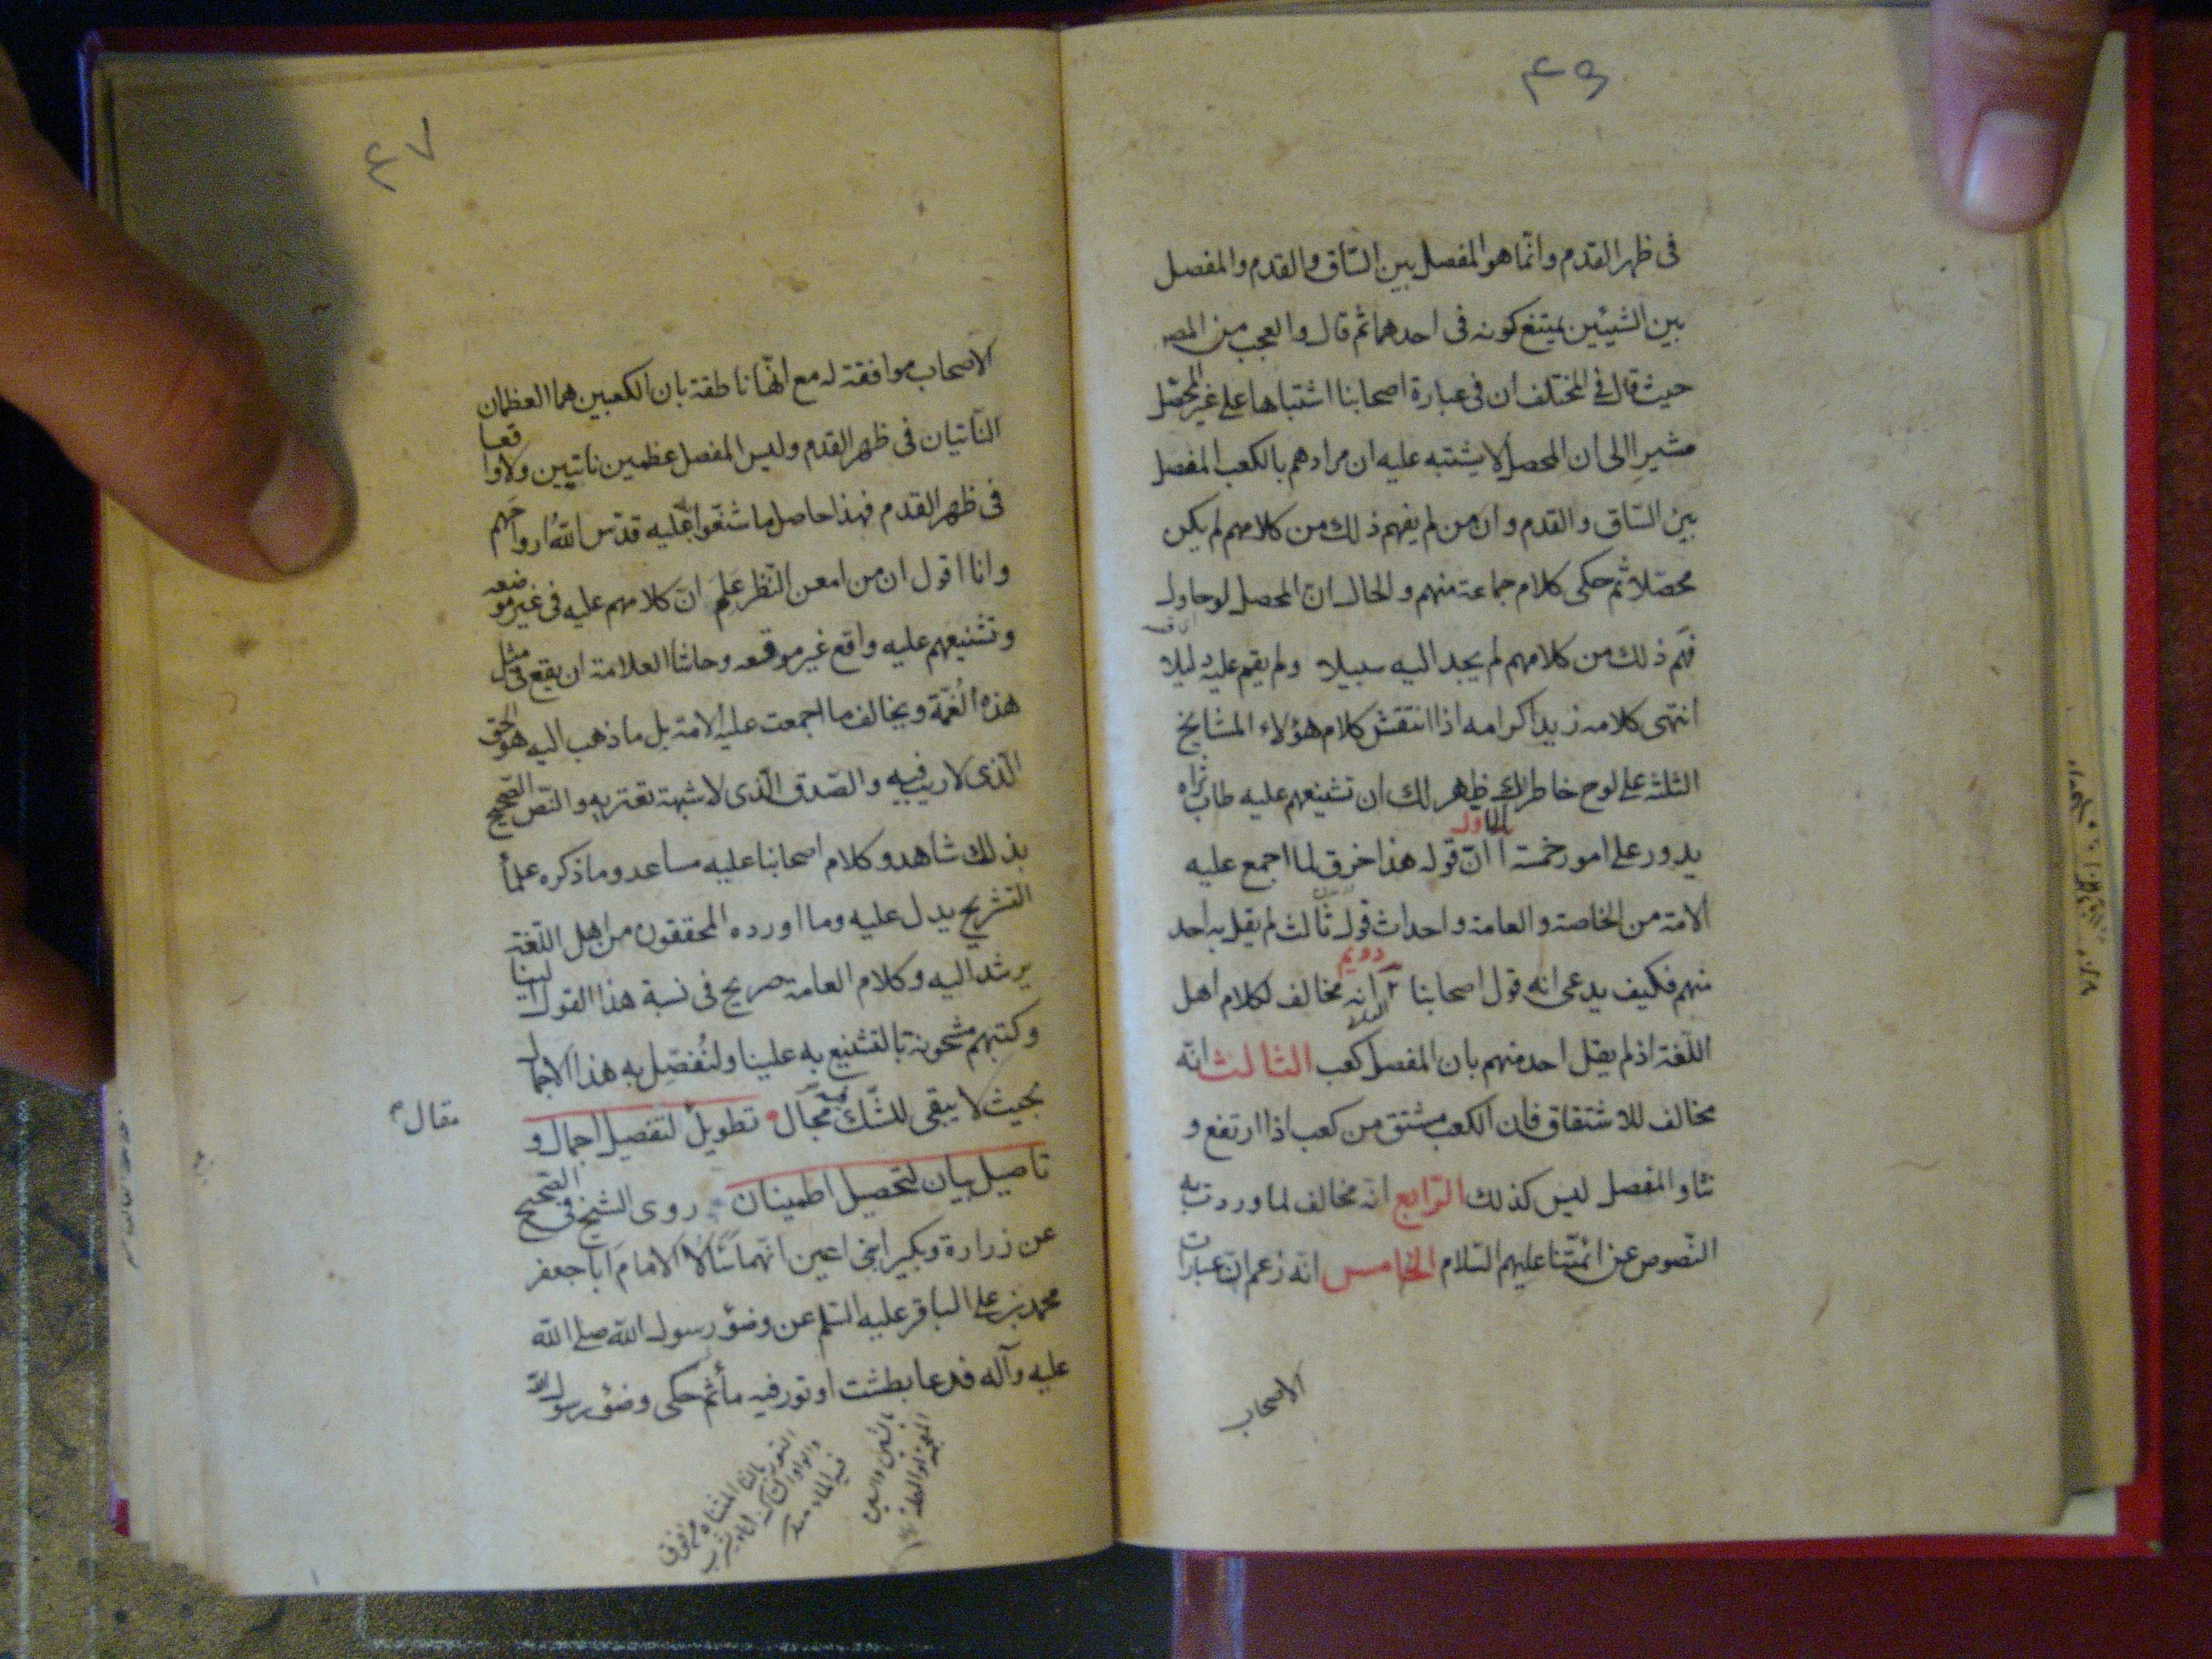 ۴۶
فى ظهر القدم وانّما هو المفصل بين السّاق والقدم والمفصل
بين الشيئين يمتنع كونه فى احدهما ثم قال والعجب من المصـ
حيث قال فى المختلف ان فى عبارة اصحابنا اشتباها على غير المحصّل
مشيرا الى ان المحصل لا يشتبه عليه ان مرادهم بالكعب المفصل
بين السّاق والقدم وان من لم يفهم ذلك من كلامهم لم يكن
محصّلا ثم حكى كلام جماعة منهم والحال انّ المحصل لو حاول
فهم ذلك من كلامهم لم يجد اليه سبيلا ولم يقم عليه دليلا
انتهى كلامه زيد اكرامه اذا انتقش كلام هؤلاء المشايخ
الثلثة على لوح خاطرك ظهر لك ان تشنيعهم عليه طاب ثراه
يدور على امور خمسة الاول ا انّ قوله هذا خرق لما اجمع عليه
الامة من الخاصة والعامة واحداث قول ثالث لم يقل به احد
منهم فكيف يدعى انه قول اصحابنا ٢ دويم انه مخالف لكلام اهل
اللّغة اذ لم يقل احد منهم بان المفصل كعب الثالث انّه
مخالف للاشتقاق فان الكعب مشتق من كعب اذا ارتفع و
نتا والمفصل ليس كذلك الرّابع انّه مخالف لما وردت به
النّصوص عن ائمّتنا عليهم السّلام الخامس انّه زعم انّ عبارات
الاصحاب
۴۷
الاصحاب موافقة له مع انّها ناطقة بان الكعبين هما العظمان
النّاتيان فى ظهر القدم وليس المفصل عظمين ناتيين ولا واقعا
فى ظهر القدم فهذا حاصل ما شنّعوا به عليه قدّس اللّه ارواحهم
وانا اقول ان من امعن النّظر عَلِمَ انّ كلامهم عليه فى غير موضعه
وتشنيعهم عليه واقع غير موقعه وحاشا العلامة ان يقع فى مثل
هذه الغُمّة ويخالف ما اجمعت عليه الامة بل ما ذهب اليه هو الحق
الّذى لا ريب فيه والصّدق الّذى لا شبهة تعتريه والنّص الصّحيح
بذلك شاهد وكلام اصحابنا عليه مساعد وما ذكره علمأ
التشريح يدل عليه وما اورده المحققون من اهل اللّغة
يرشد اليه وكلام العامة صريح فى نسبة هذا القول الينا
وكتبهم مشحونة بالتشنيع به علينا ولنُفصّل به هذا الاجمال
بحيث لا يبقى للشّك فيه مجال تطويل لتفصيل اجمال و
مقال
تاصيل بيان لتحصيل اطمينان روى الشيخ فى الصّحيح
عن زرارة وبكير ابنى اعين انّهما سَئَالا الامامَ اباجعفر
محمد بن على الباقر عليه السّلم عن وضوء رسول اللّه صلى اللّه
عليه وآله فدعا بطشت او تور فيه مأ ثم حكى وضوء رسول اللّه
التور بالتا المثناة من فوق
والواو والراء اناء يشرب
فيه الماء منه
بالشين والسين